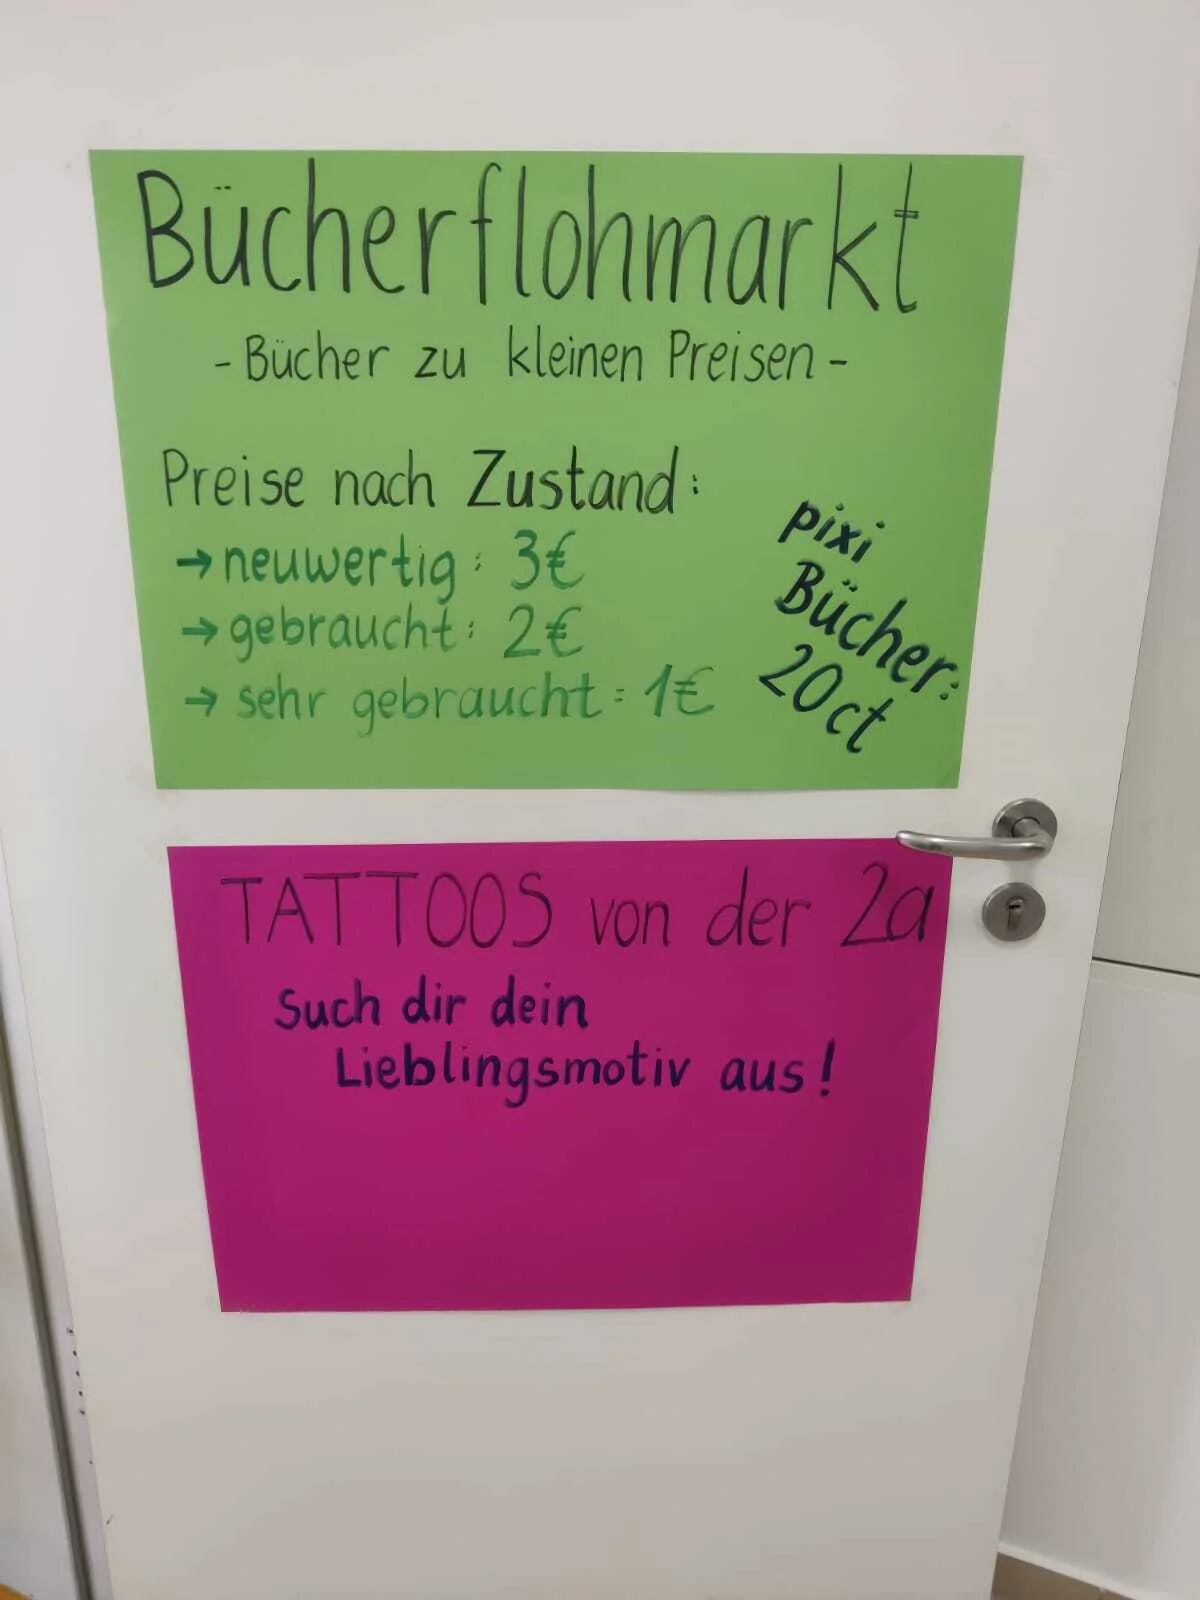 Bücherflohmarkt
- Bücher zu kleinen Preisen -
Preise nach Zustand:
→ neuwertig: 3€
→ gebraucht: 2€
→ sehr gebraucht: 1€
pixi
Bücher:
20ct
TATTOOS von der 2a
Such dir dein
Lieblingsmotiv aus!